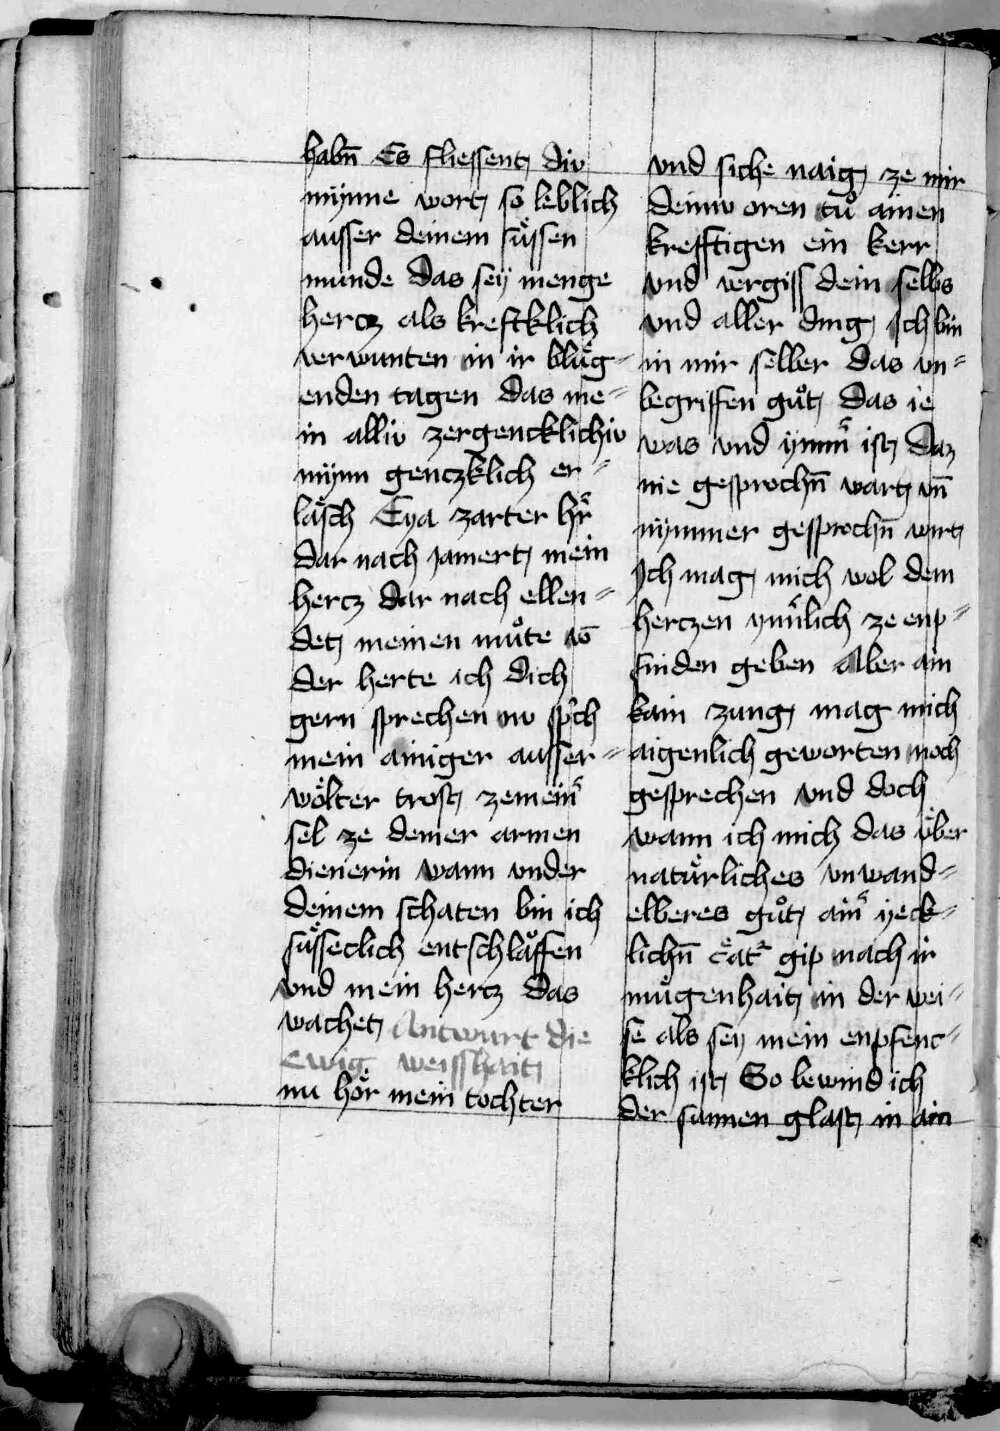 habn̄ Es fliessent div
mynne wort so leblich
ausser deinem süssen
munde das sey menge
hercz als kreftklich
verwunten in ir blüg-
enden tagen das me-
in alliv zergencklichiv
mynn genczklich er-
läsch Eya zarter hr̄
dar nach jamert mein
hercz dar nach ellen-
det meinen mu̇te wō
der herte ich dich
gern sprechen nv sp̄ch
mein ainiger ausser-
wölter trost zemein̄
sel ze deiner armen
dienerin wann vnder
deinem schaten bin ich
süsseclich entschlaͦffen
vnd mein hercz das
wachet Antwurt die
Ewig weisshait
nu hör mein tochter
vnd siche naig ze mir
deinw oren tuͦ ainen
krefftigen ein kerr
vnd vergiss dein selbs
vnd aller ding ich bin
in mir selber das vn-
begriffen guͦt das ie
was vnd ymm̄ ist Daz
nie gesprochn̄ wart vn̄
nymmer gesprochn̄ wirt
Ich mag mich wol dem
herczen ynn̄lich ze enp-
finden geben Aber ain
kain zung mag mich
aigenlich geworten noch
gesprechen vnd doch
wann ich mich das über
natürliches vnwand-
elberes guͦt ain̄ yeck-
lichn̄ c̈at gip nach ir
mügenhait in der wei-
se als sey mein enpfenc-
klich ist So bewind ich
der sunnen glast in ain